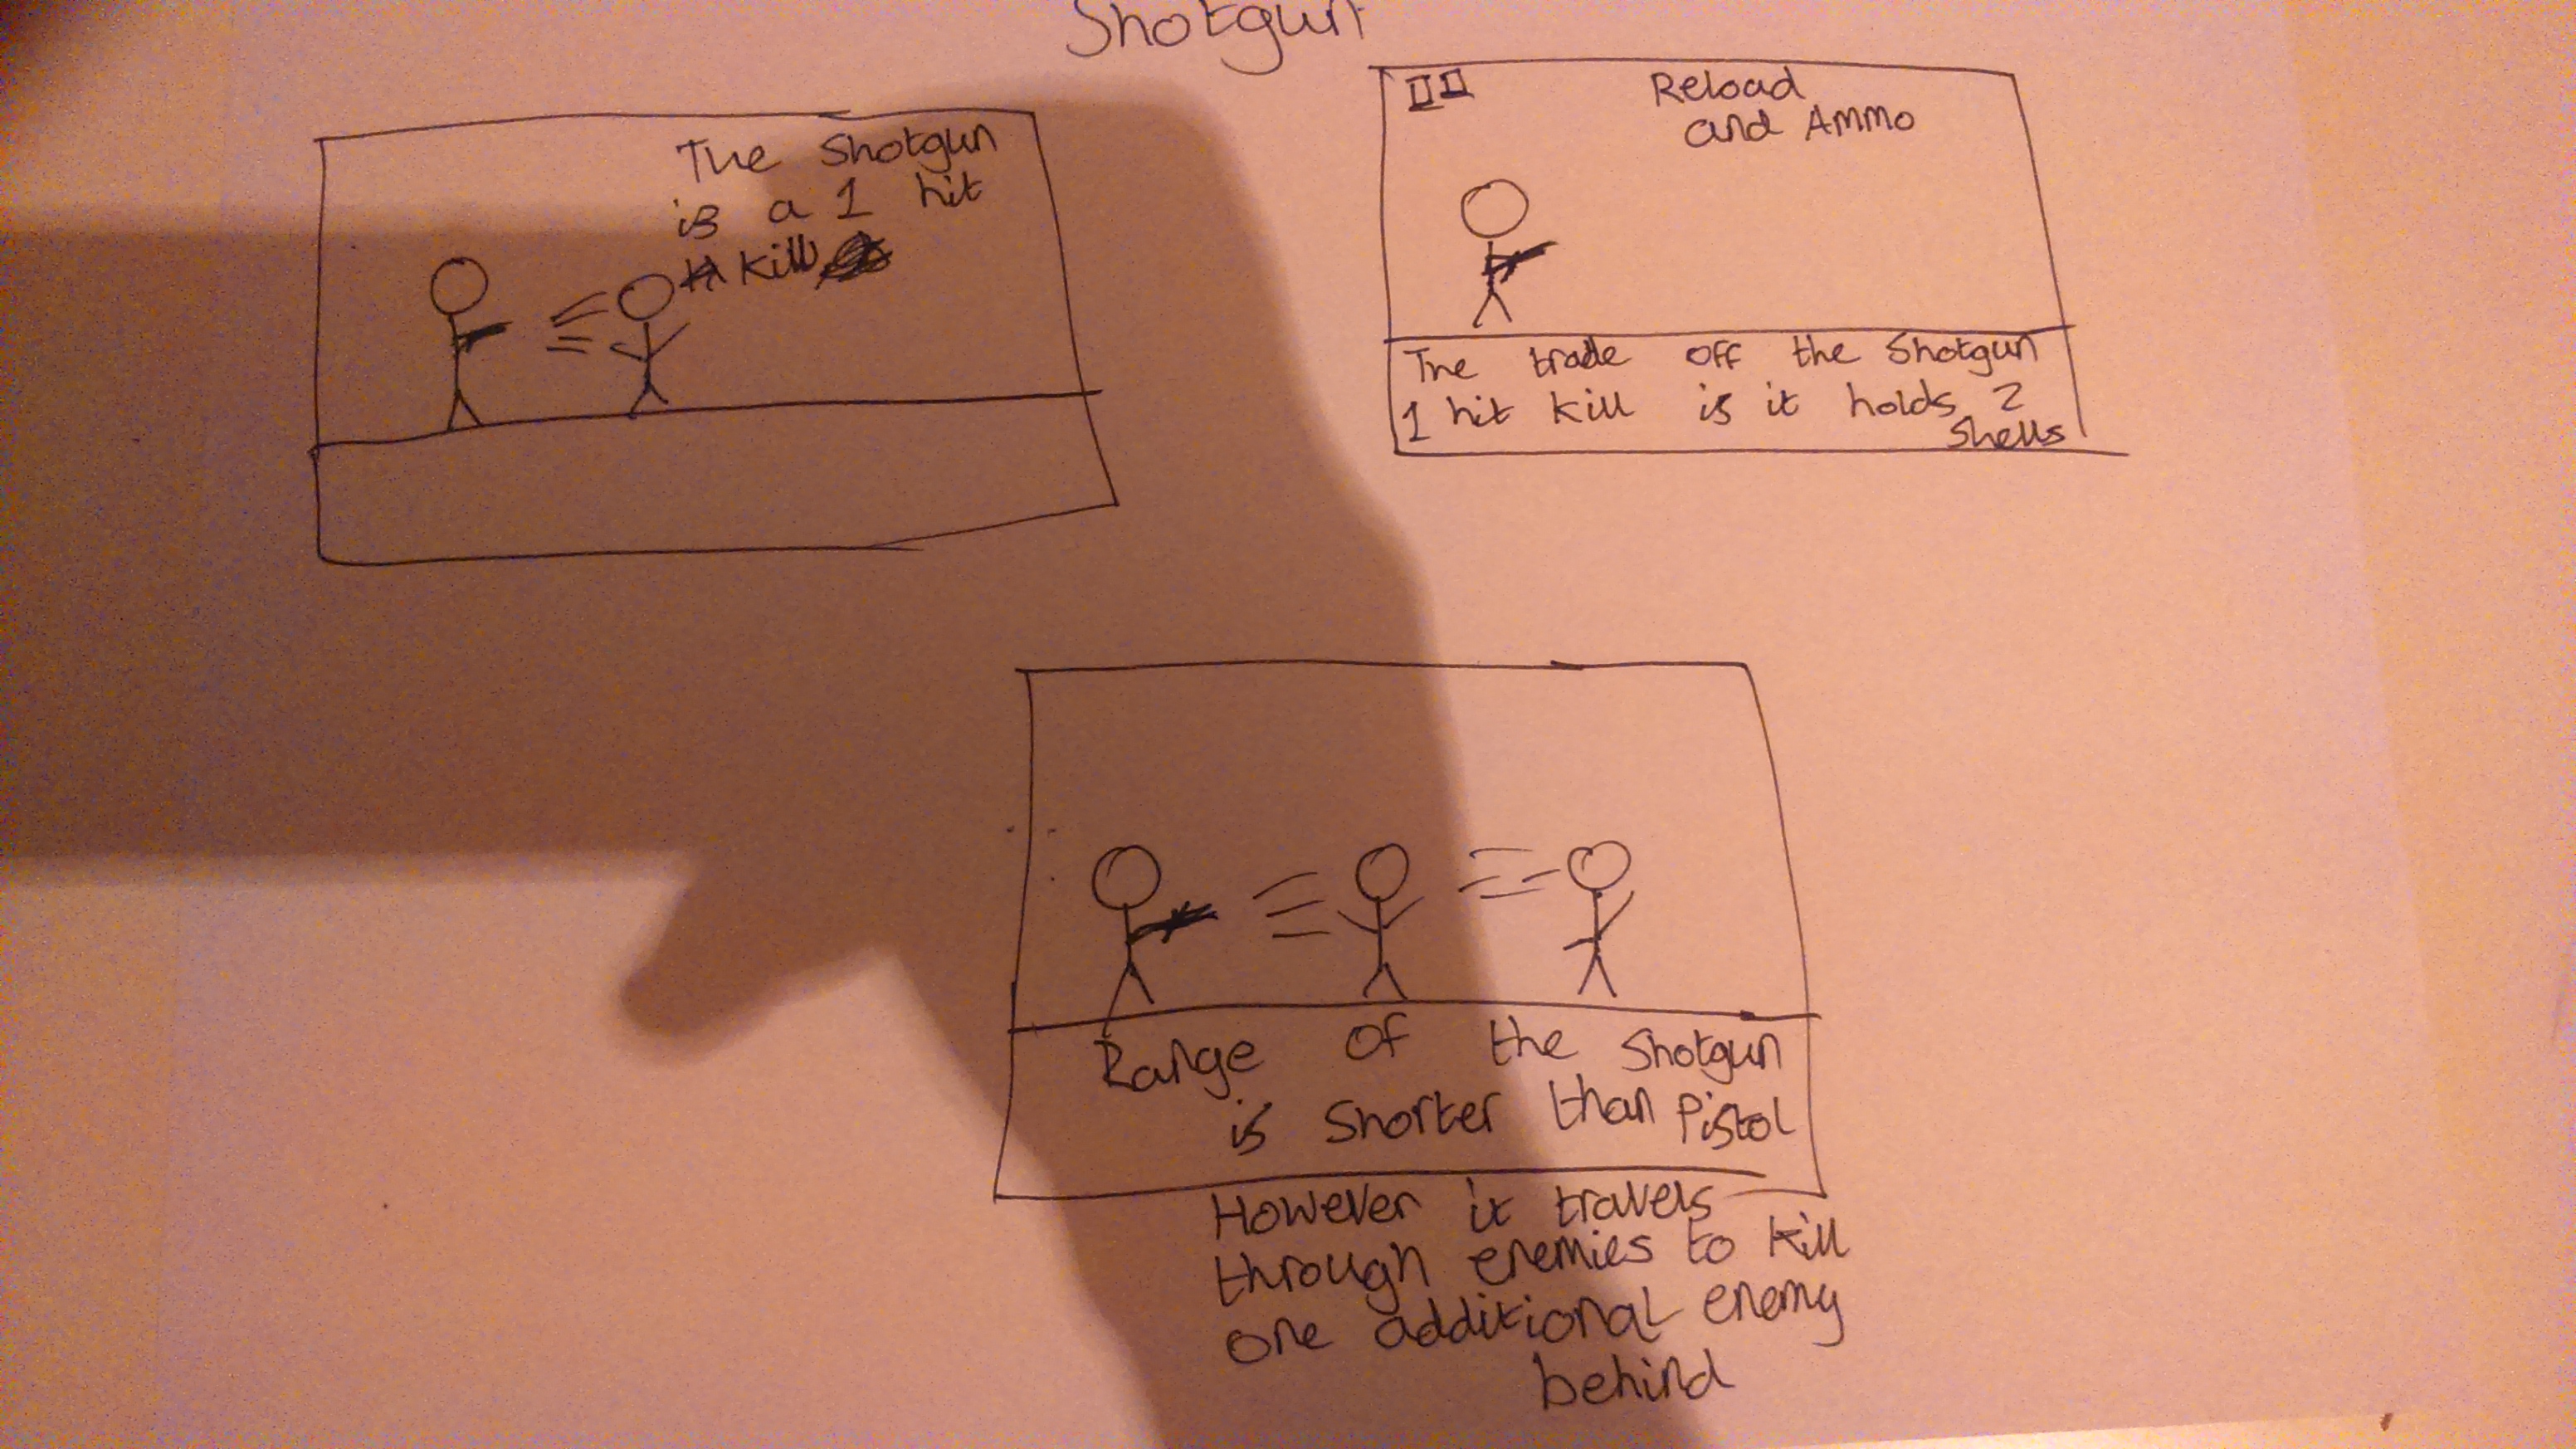 Shotgun
The Shotgun
is a 1 hit
kill
Reload
and Ammo
The trade off the Shotgun
1 hit kill is it holds 2
Shells
Range of the Shotgun
is Shorter than Pistol
However it travels
through enemies to kill
one additional enemy
behind